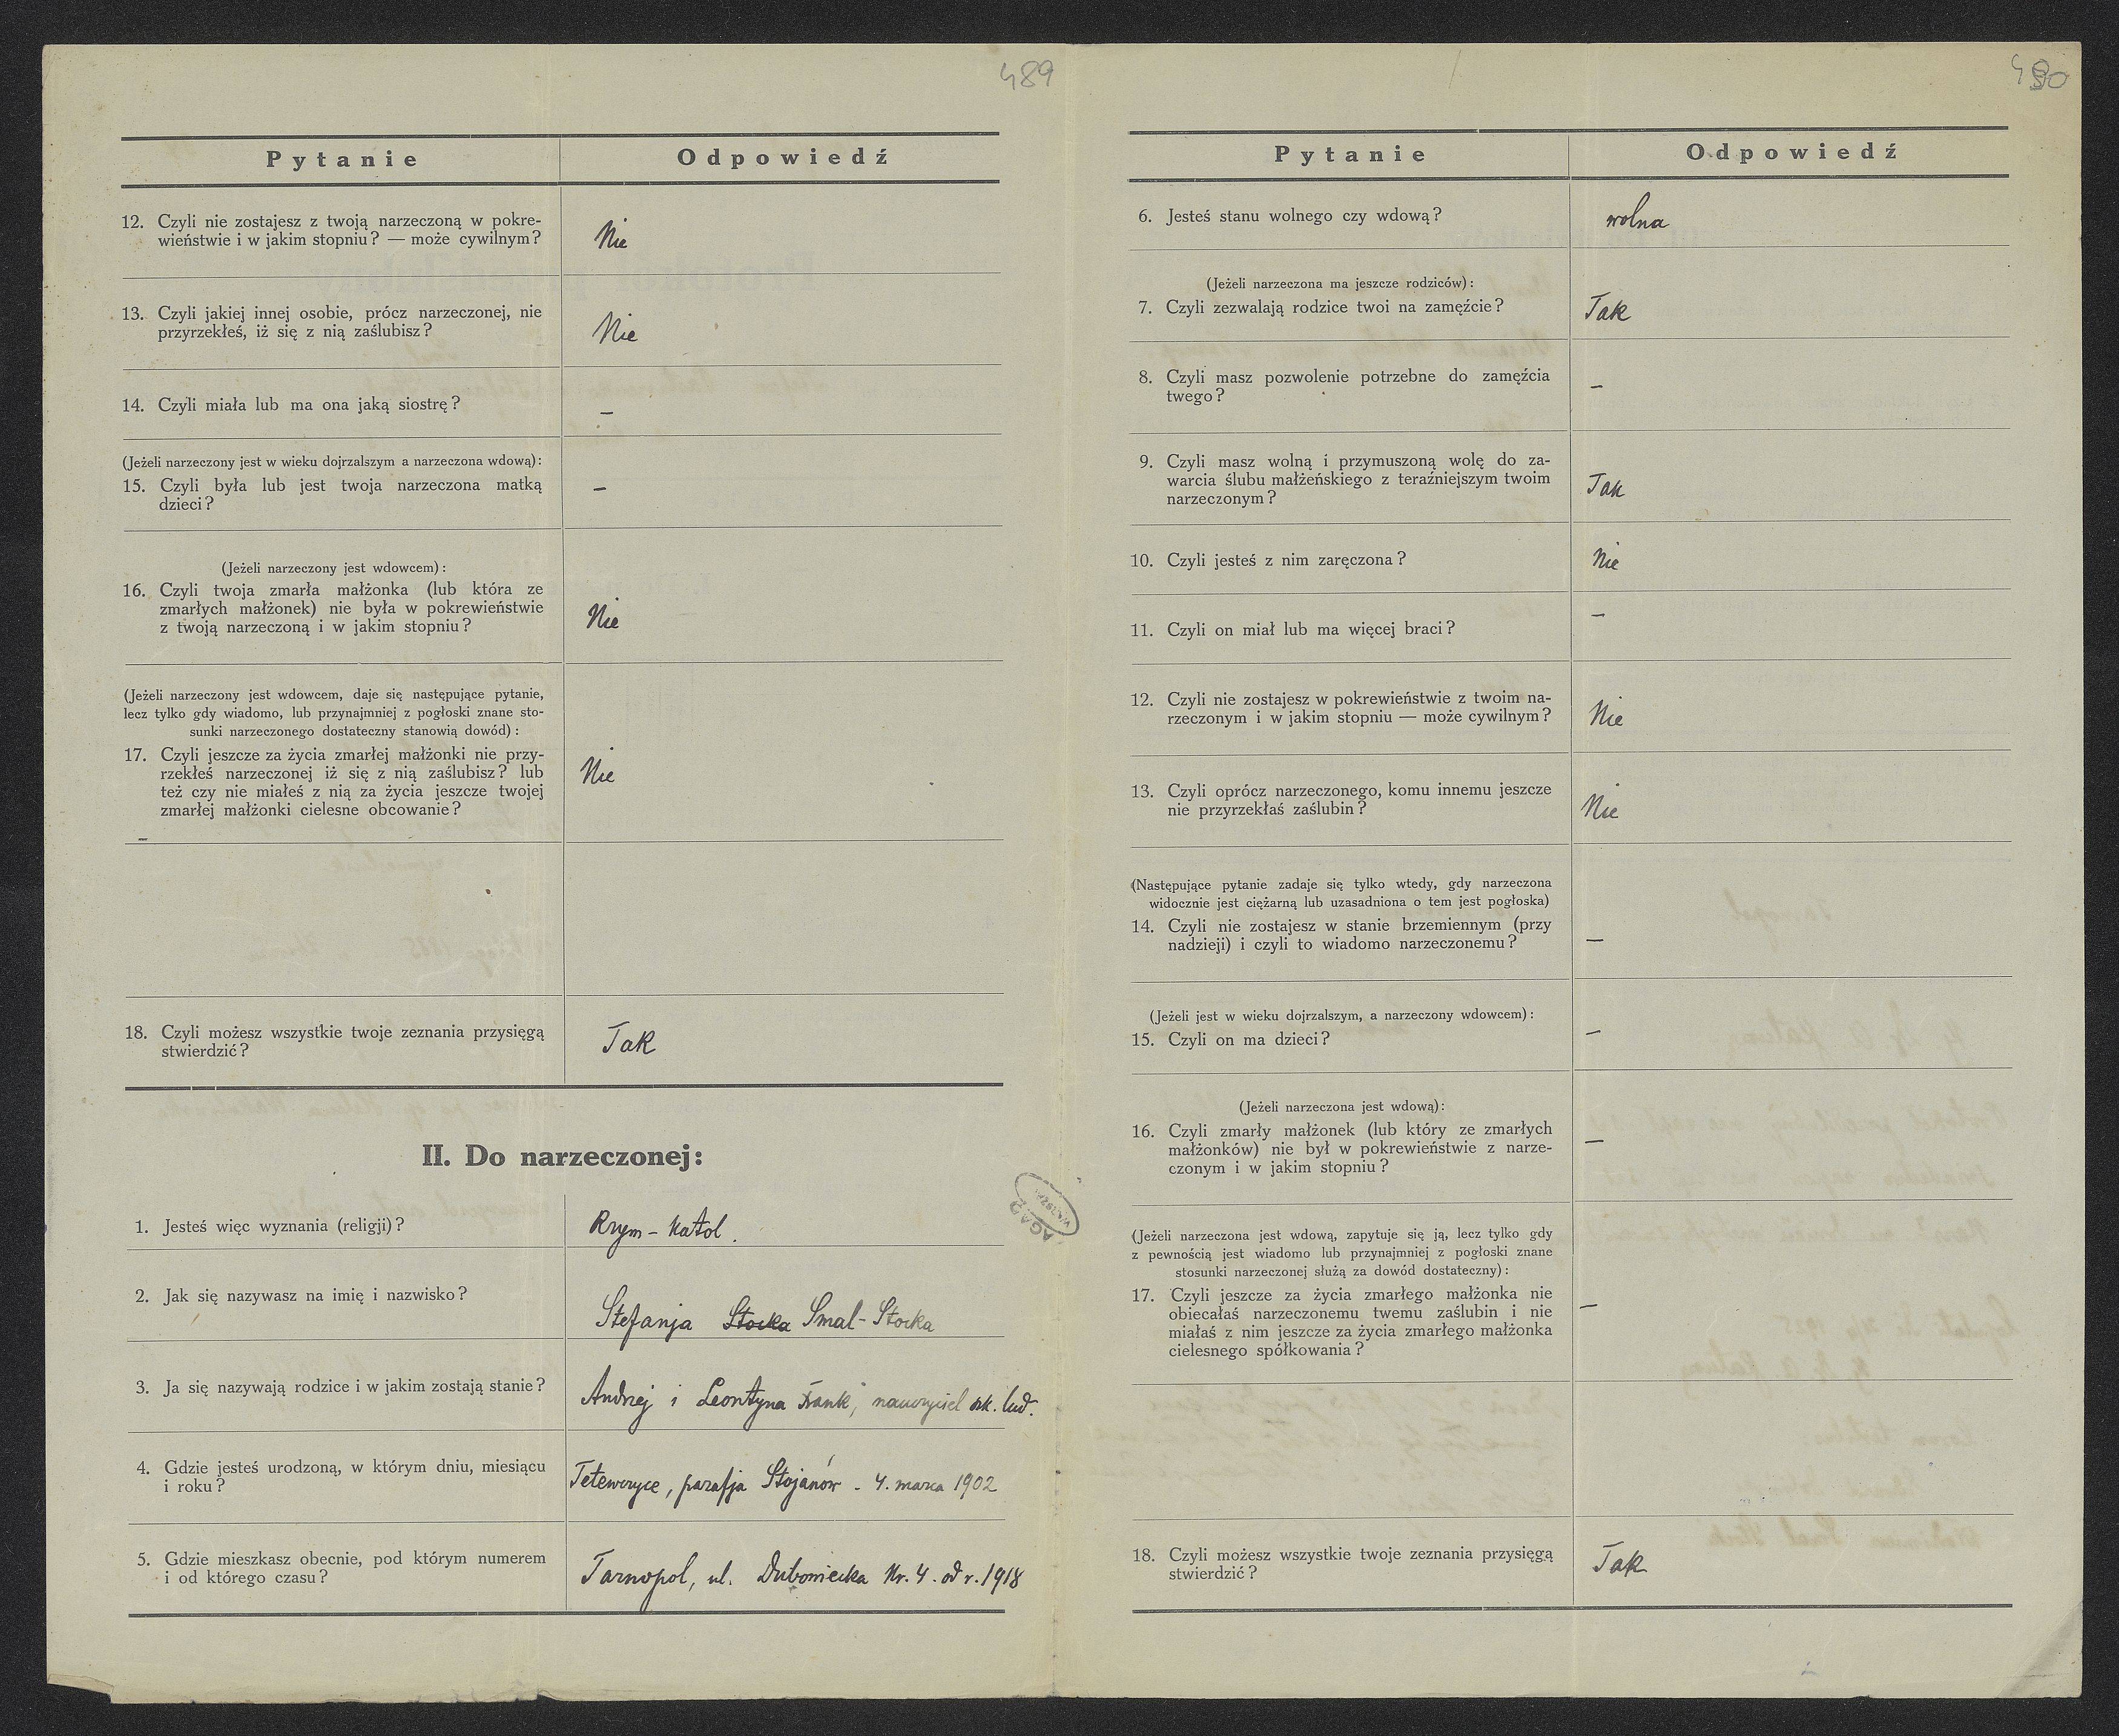 489
Pytanie
Odpowiedź
12. Czyli nie zostajesz z twoją narzeczoną w pokre-
wieństwie i w jakim stopniu? — może cywilnym?
Nie
13. Czyli jakiej innej osobie, prócz narzeczonej, nie
przyrzekłeś, iż się z nią zaślubisz?
Nie
14. Czyli miała lub ma ona jaką siostrę?
—
(Jeżeli narzeczony jest w wieku dojrzalszym a narzeczona wdową):
15. Czyli była lub jest twoja narzeczona matką
dzieci?
—
(Jeżeli narzeczony jest wdowcem):
16. Czyli twoja zmarła małżonka (lub która ze
zmarłych małżonek) nie była w pokrewieństwie
z twoją narzeczoną i w jakim stopniu?
Nie
(Jeżeli narzeczony jest wdowcem, daje się następujące pytanie,
lecz tylko gdy wiadomo, lub przynajmniej z pogłoski znane sto-
sunki narzeczonego dostateczny stanowią dowód):
17. Czyli jeszcze za życia zmarłej małżonki nie przy-
rzekłeś narzeczonej iż się z nią zaślubisz? lub
też czy nie miałeś z nią za życia jeszcze twojej
zmarłej małżonki cielesne obcowanie?
Nie
18. Czyli możesz wszystkie twoje zeznania przysięgą
stwierdzić?
Tak
II. Do narzeczonej:
1. Jesteś więc wyznania (religji)?
Rzym-katol.
2. Jak się nazywasz na imię i nazwisko?
Stefanja Stocka Smal-Stocka
3. Ja się nazywają rodzice i w jakim zostają stanie?
Andrzej i Leontyna Frank, nauczyciel szk. lud.
4. Gdzie jesteś urodzoną, w którym dniu, miesiącu
i roku?
Tetewczyce, parafja Stojanów - 4. marca 1902
5. Gdzie mieszkasz obecnie, pod którym numerem
i od którego czasu?
Tarnopol, ul. Nr. 4. od r. 1918
AGAD
490
Pytanie
Odpowiedź
6. Jesteś stanu wolnego czy wdową?
wolna
(Jeżeli narzeczona ma jeszcze rodziców):
7. Czyli zezwalają rodzice twoi na zamęźcie?
Tak
8. Czyli masz pozwolenie potrzebne do zamęźcia
twego?
—
9. Czyli masz wolną i przymuszoną wolę do za-
warcia ślubu małżeńskiego z teraźniejszym twoim
narzeczonym?
Tak
10. Czyli jesteś z nim zaręczona?
Nie
11. Czyli on miał lub ma więcej braci?
—
12. Czyli nie zostajesz w pokrewieństwie z twoim na-
rzeczonym i w jakim stopniu — może cywilnym?
Nie
13. Czyli oprócz narzeczonego, komu innemu jeszcze
nie przyrzekłaś zaślubin?
Nie
(Następujące pytanie zadaje się tylko wtedy, gdy narzeczona
widocznie jest ciężarną lub uzasadniona o tem jest pogłoska)
14. Czyli nie zostajesz w stanie brzemiennym (przy
nadzieji) i czyli to wiadomo narzeczonemu?
—
(Jeżeli jest w wieku dojrzalszym, a narzeczony wdowcem):
15. Czyli on ma dzieci?
—
(Jeżeli narzeczona jest wdową):
16. Czyli zmarły małżonek (lub który ze zmarłych
małżonków) nie był w pokrewieństwie z narze-
czonym i w jakim stopniu?
—
(Jeżeli narzeczona jest wdową, zapytuje się ją, lecz tylko gdy
z pewnością jest wiadomo lub przynajmniej z pogłoski znane
stosunki narzeczonej służą za dowód dostateczny):
17. Czyli jeszcze za życia zmarłego małżonka nie
obiecałaś narzeczonemu twemu zaślubin i nie
miałaś z nim jeszcze za życia zmarłego małżonka
cielesnego spółkowania?
—
18. Czyli możesz wszystkie twoje zeznania przysięgą
stwierdzić?
Tak